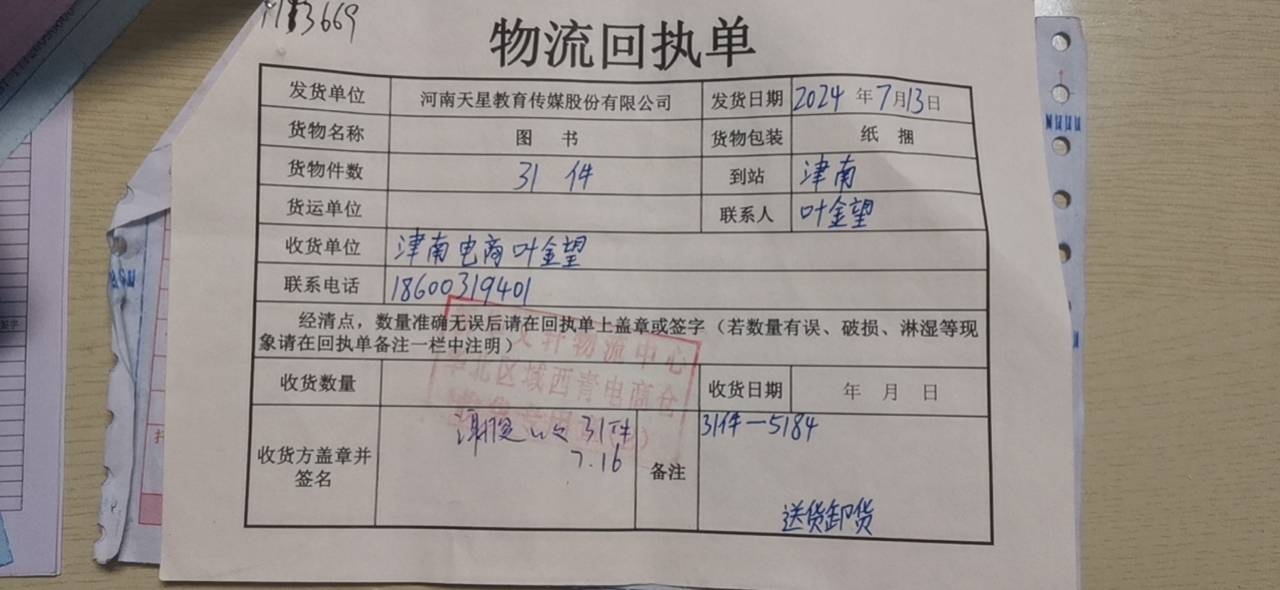 物流回执单
发货单位 河南天星教育传媒股份有限公司 发货日期 2024年7月13日
货物名称 图书 货物包装 纸捆
货物件数 31件 到站 津南
货运单位 联系人 叶金望
收货单位 津南电商叶金望
联系电话 18600319401
经清点，数量准确无误后请在回执单上盖章或签字（若数量有误、破损、淋湿等现
象请在回执单备注一栏中注明）
轩物流中心
北区域西青电商仓
收货数量 收货日期 年 月 日
收货方盖章并
签名
31件
7.16
备注
31件-5184
送货卸货